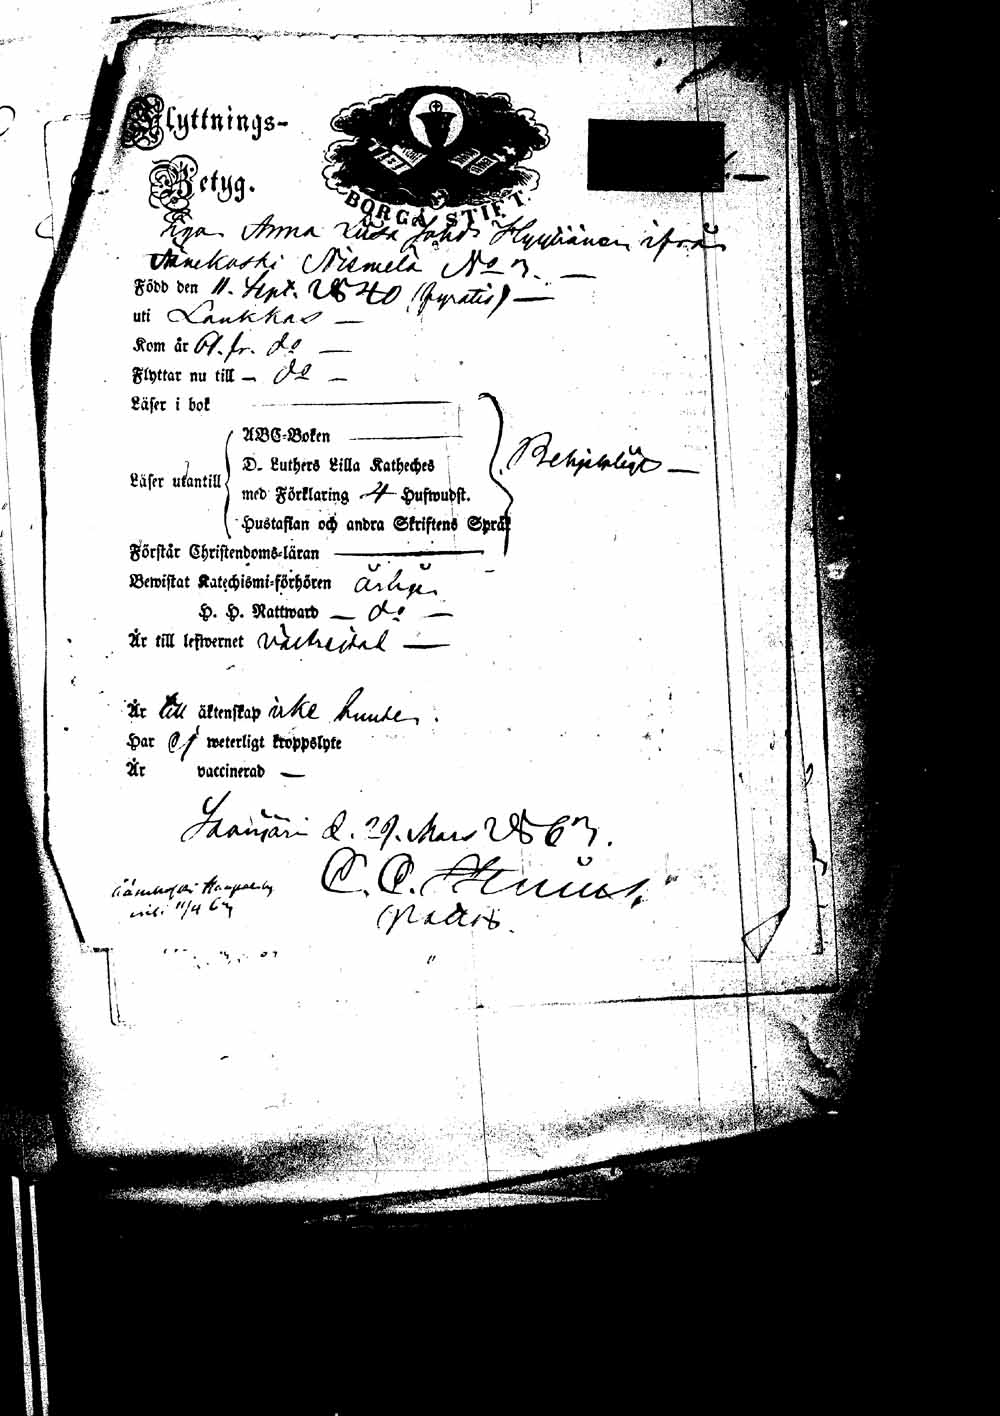 Flyttnings-
Betyg.
BORGÅ STIFT.
Pigan Anna Lisa Johds Hyytiäinen ifrån
Äänekoski Nismelä No 3.
Född den 11. Sept. 1840 (fyratio)
uti Laukkas
Kom år 61. fr. do
Flyttar nu till do
Läser i bok
ABC-Boken
D. Luthers Lilla Katheches
Läser utantill
med Förklaring 4 Hufwudst.
Hustaflan och andra Skriftens Språk
Förstår Christendoms-läran
Bewistat Katechismi-förhören årligen
H. H. Nattward do
Är till lefwernet
Är till äktenskap icke bunden.
Har ej weterligt kroppslyte
Är vaccinerad
Saarijärvi d. 29. Mars 1863.
C. C.
Pastor.
11/4 63